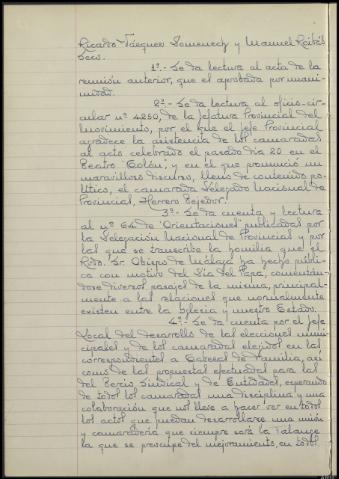 Ricardo Vázquez Domenech y Manuel Recibés
Seco.
1º.- Se da lectura al acta de la
reunión anterior, que es aprobada por unani-
midad.
2º.- Se da lectura al oficio-cir-
cular nº 4250, de la Jefatura Provincial del
Movimiento, por el que el Jefe Provincial
agradece la asistencia de los camaradas
al acto celebrado el pasado día 20 en el
Teatro Colón, y en el que pronunció un
maravilloso discurso, lleno de contenido po-
lítico, el camarada Delegado Nacional de
Provincial, Herrero Tejedor.
3º.- Se da cuenta y lectura
al nº 64 de "Orientaciones" publicadas por
la Delegación Nacional de Provincial y por
las que se transcribe la homilia que el
Rvdo. Sr. Obispo de Málaga ha hecho públi-
ca con motivo del Día del Papa, comentán-
dose diversos pasajes de la misma, principal-
mente a las relaciones que normalmente
existen entre la Iglesia y nuestro Estado.
4º.- Se da cuenta por el Jefe
Local del desarrollo de las elecciones muni-
cipales y de los camaradas elegidos en las
correspondientes a Cabezas de Familia, así
como de las propuestas efectuadas para las
del Tercio Sindical y de Entidades, esperando
de todos los camaradas una disciplina y una
colaboración que nos lleve a hacer ver en todos
los actos que puedan desarrollarse una unión
y camaradería que siempre será la Falange
la que se preocupe del mejoramiento, en todos